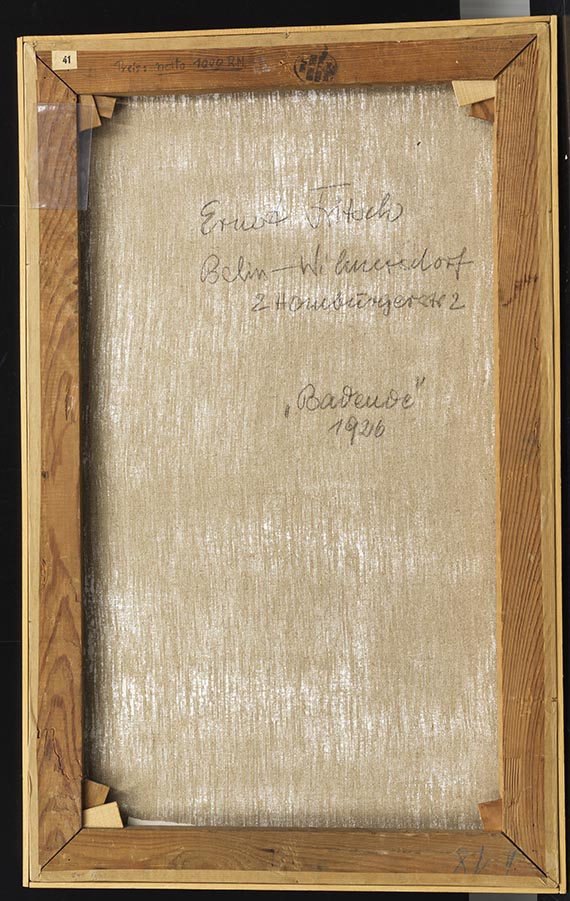 41
Preis: netto 1000 RM
Ernst Fritsch
Berlin-Wilmersdorf
2 Homburgerstr 2
„Badende"
1926